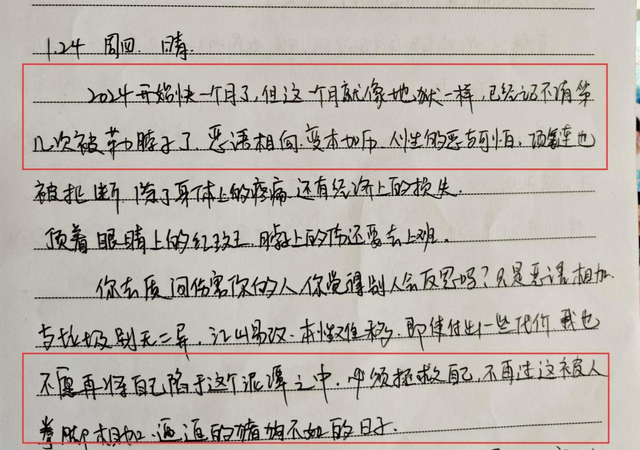 1.24 周四 晴
2024开始快一个月了,但这一个月就像地狱一样,已经记不清第
几次被勒脖子了.恶语相向.变本加厉.人性的恶与可怕,项链也
被扯断 除了身体上的疼痛 还有经济上的损失.
顶着眼睛上的红斑 脖子上的伤还要去上班.
你去质问伤害你的人 你觉得别人会反思吗?只是恶语相加
与垃圾别无二异,江山易改.本性难移.即使付出一些代价 我也
不愿再将自己陷于这个泥潭之中,必须拯救自己,不再过这被人
拳脚相加.逼迫的猪狗不如的日子.